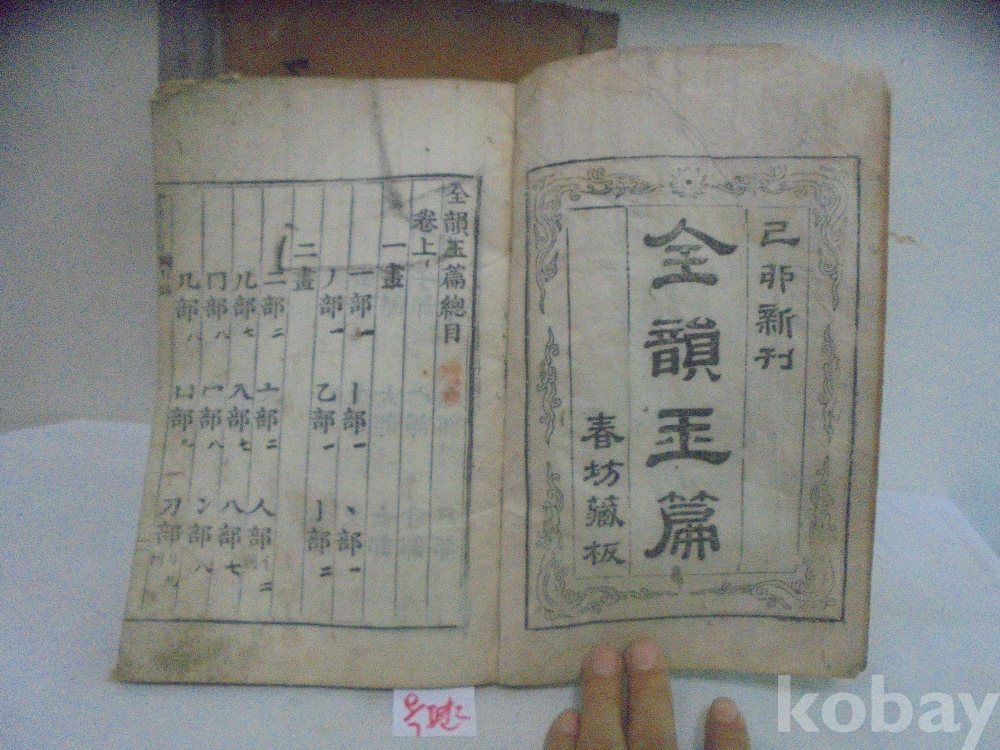 己卯新刊
全韻玉篇
春坊藏板
全韻玉篇總目
卷上
一畫
一部一 丨部一 丶部一
丿部一 乙部一 亅部二
二畫
二部二 亠部二 人部二
儿部七 入部七 八部七
冂部八 冖部八 冫部八
几部八 凵部 刀部
옥편
kobay